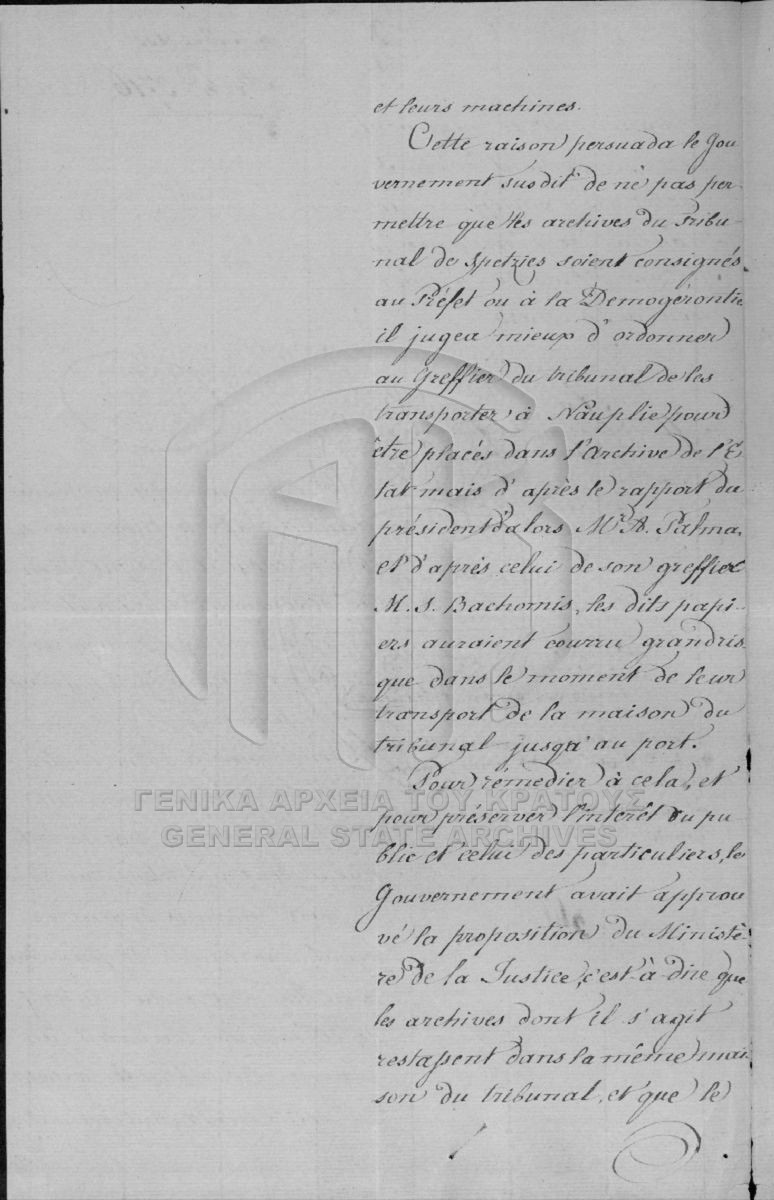 et leurs machines.
Cette raison persuada le Gou
vernement susdit de ne pas per
mettre que les archives du Tribu-
nal de Spetzies soient consignés
au Préfet ou à la Demogérontie
il jugea mieux d'ordonner
au Greffier du tribunal de les
transporter à Nauplie pour
être placés dans l'Archive de l'E
tat mais d'après le rapport du
président d'alors Mr A. Palma,
et d'après celui de son greffier
M. S. Bachomis, les dits papi-
ers auraient courru grand ris
que dans le moment de leur
transport de la maison du
tribunal jusqu'au port.
Pour rémedier à cela, et
pour préserver l'interêt du pu-
blic et celui des particuliers, le
Gouvernement avait approu
vé la proposition du Ministè-
re de la Justice, c'est-à-dire que
les archives dont il s'agit
restassent dans la même mai
son du tribunal, et que le
ΓΕΝΙΚΑ ΑΡΧΕΙΑ ΤΟΥ ΚΡΑΤΟΥΣ
GENERAL STATE ARCHIVES